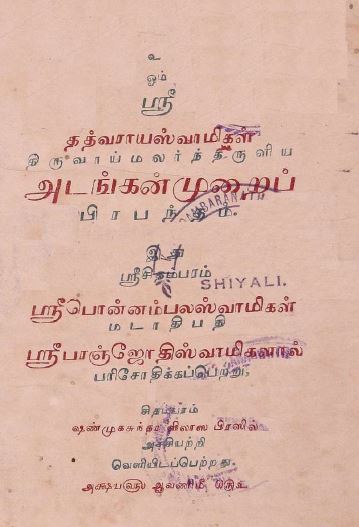 உ
ஓம்
ஸ்ரீ
தத்வராயஸ்வாமிகள்
திருவாய்மலர்ந்தருளிய
அடங்கன்முறைப்
பிரபந்தம்.
இது
ஸ்ரீசிதம்பரம்
SHIYALI.
ஸ்ரீபொன்னம்பலஸ்வாமிகள்
மடாதிபதி
ஸ்ரீபரஞ்ஜோதிஸ்வாமிகளால்
பரிசோதிக்கப்பெற்று,
சிதம்பரம்
ஷண்முகசுந்தர விலாஸ பிரஸில்
அச்சியற்றி
வெளியிடப்பெற்றது.
அக்ஷயவரு ஆவணிமீ